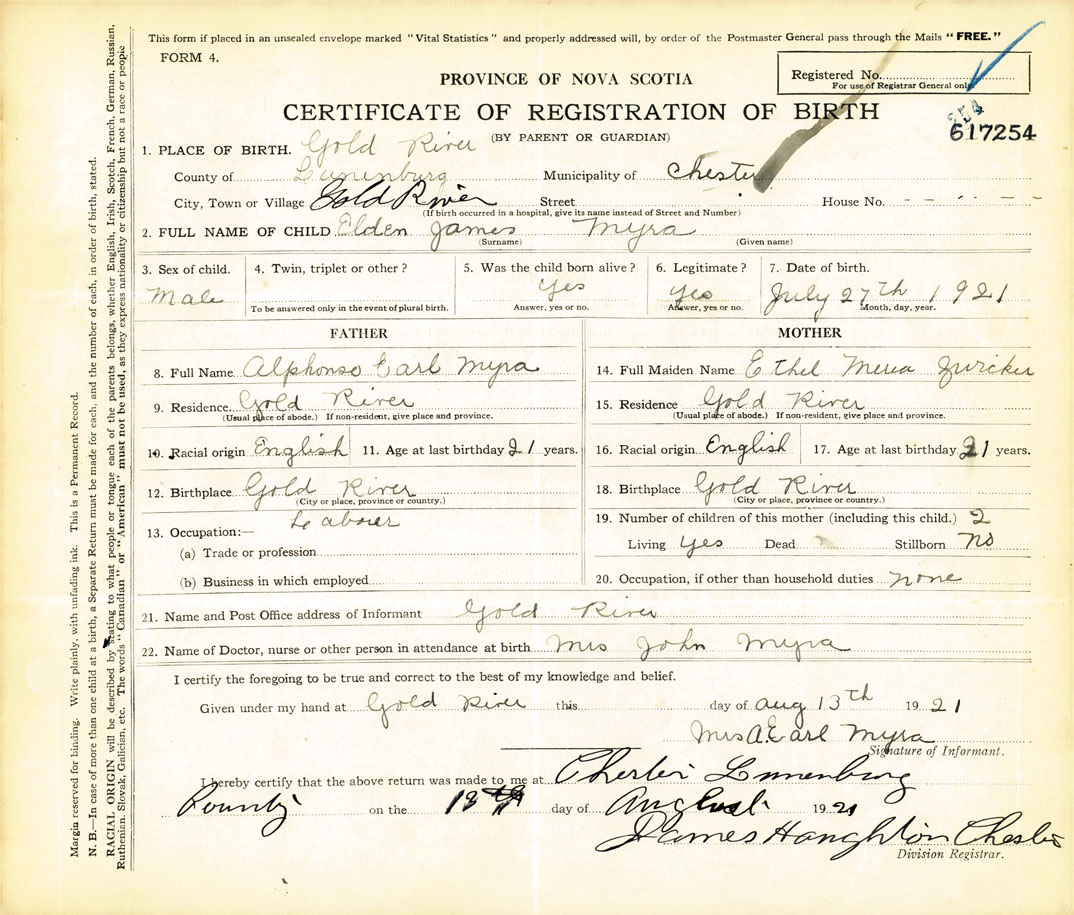 This form if placed in an unsealed envelope marked "Vital Statistics" and properly addressed will, by order of the Postmaster General pass through the Mails "FREE."
FORM 4.
PROVINCE OF NOVA SCOTIA
Registered No.
For use of Registrar General only.
CERTIFICATE OF REGISTRATION OF BIRTH
254
617254
(BY PARENT OR GUARDIAN)
1. PLACE OF BIRTH. Gold River
County of Lunenburg Municipality of Chester
City, Town or Village Gold River Street House No. - - - - -
(If birth occurred in a hospital, give its name instead of Street and Number)
2. FULL NAME OF CHILD Elden James Myra
(Surname) (Given name)
3. Sex of child. 4. Twin, triplet or other? 5. Was the child born alive? 6. Legitimate? 7. Date of birth.
Male yes yes July 27th 1921
To be answered only in the event of plural birth. Answer, yes or no. Answer, yes or no. Month, day, year.
FATHER MOTHER
8. Full Name Alphonso Earl Myra 14. Full Maiden Name Ethel Zwicker
9. Residence Gold River 15. Residence Gold River
(Usual place of abode.) If non-resident, give place and province. (Usual place of abode.) If non-resident, give place and province.
10. Racial origin English 11. Age at last birthday 21 years. 16. Racial origin English 17. Age at last birthday 21 years.
12. Birthplace Gold River 18. Birthplace Gold River
(City or place, province or country.) (City or place, province or country.)
13. Occupation:— Labourer 19. Number of children of this mother (including this child.) 2
(a) Trade or profession Living yes Dead Stillborn no
(b) Business in which employed 20. Occupation, if other than household duties none
21. Name and Post Office address of Informant Gold River
22. Name of Doctor, nurse or other person in attendance at birth Mrs John Myra
I certify the foregoing to be true and correct to the best of my knowledge and belief.
Given under my hand at Gold River this day of Aug 13th 1921
Mrs A. Earl Myra
Signature of Informant.
I hereby certify that the above return was made to me at Chester Lunenburg
County on the 13th day of August 1921
James Haughton Chester
Division Registrar.
Margin reserved for binding. Write plainly, with unfading ink. This is a Permanent Record.
N. B.—In case of more than one child at a birth, a Separate Return must be made for each, and the number of each, in order of birth, stated.
RACIAL ORIGIN will be described by stating to what people or tongue each of the parents belongs, whether English, Irish, Scotch, French, German, Russian,
Ruthenian, Slovak, Galician, etc. The words "Canadian" or "American" must not be used, as they express nationality or citizenship but not a race or people